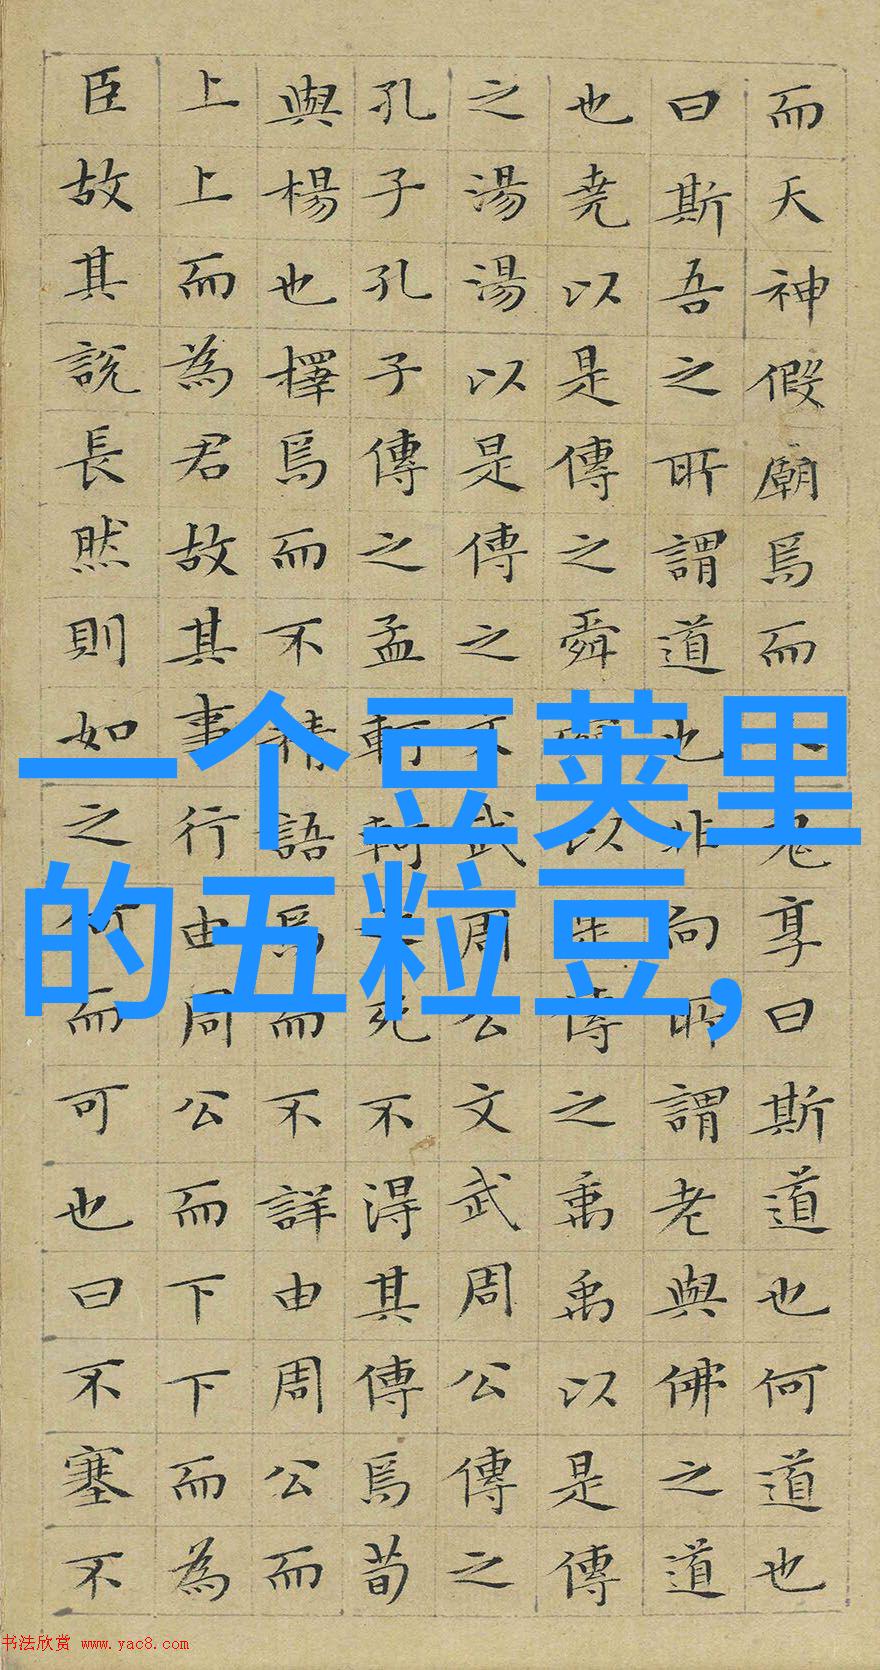 而天神假廟焉而鬼享曰斯道也何道也
曰斯吾之所謂道也非向所謂老與佛之道
也堯以是傳之舜舜以是傳之禹禹以是傳
之湯湯以是傳之文武周公文武周公傳之
孔子孔子傳之孟軻軻之死不得其傳焉荀
與楊也擇焉而不精語焉而不詳由周公而
上上而為君故其事行由周公而下下而為
臣故其說長然則如之何而可也曰不塞不
一个豆荚里
的五粒豆,
书法欣赏 www.yac8.com